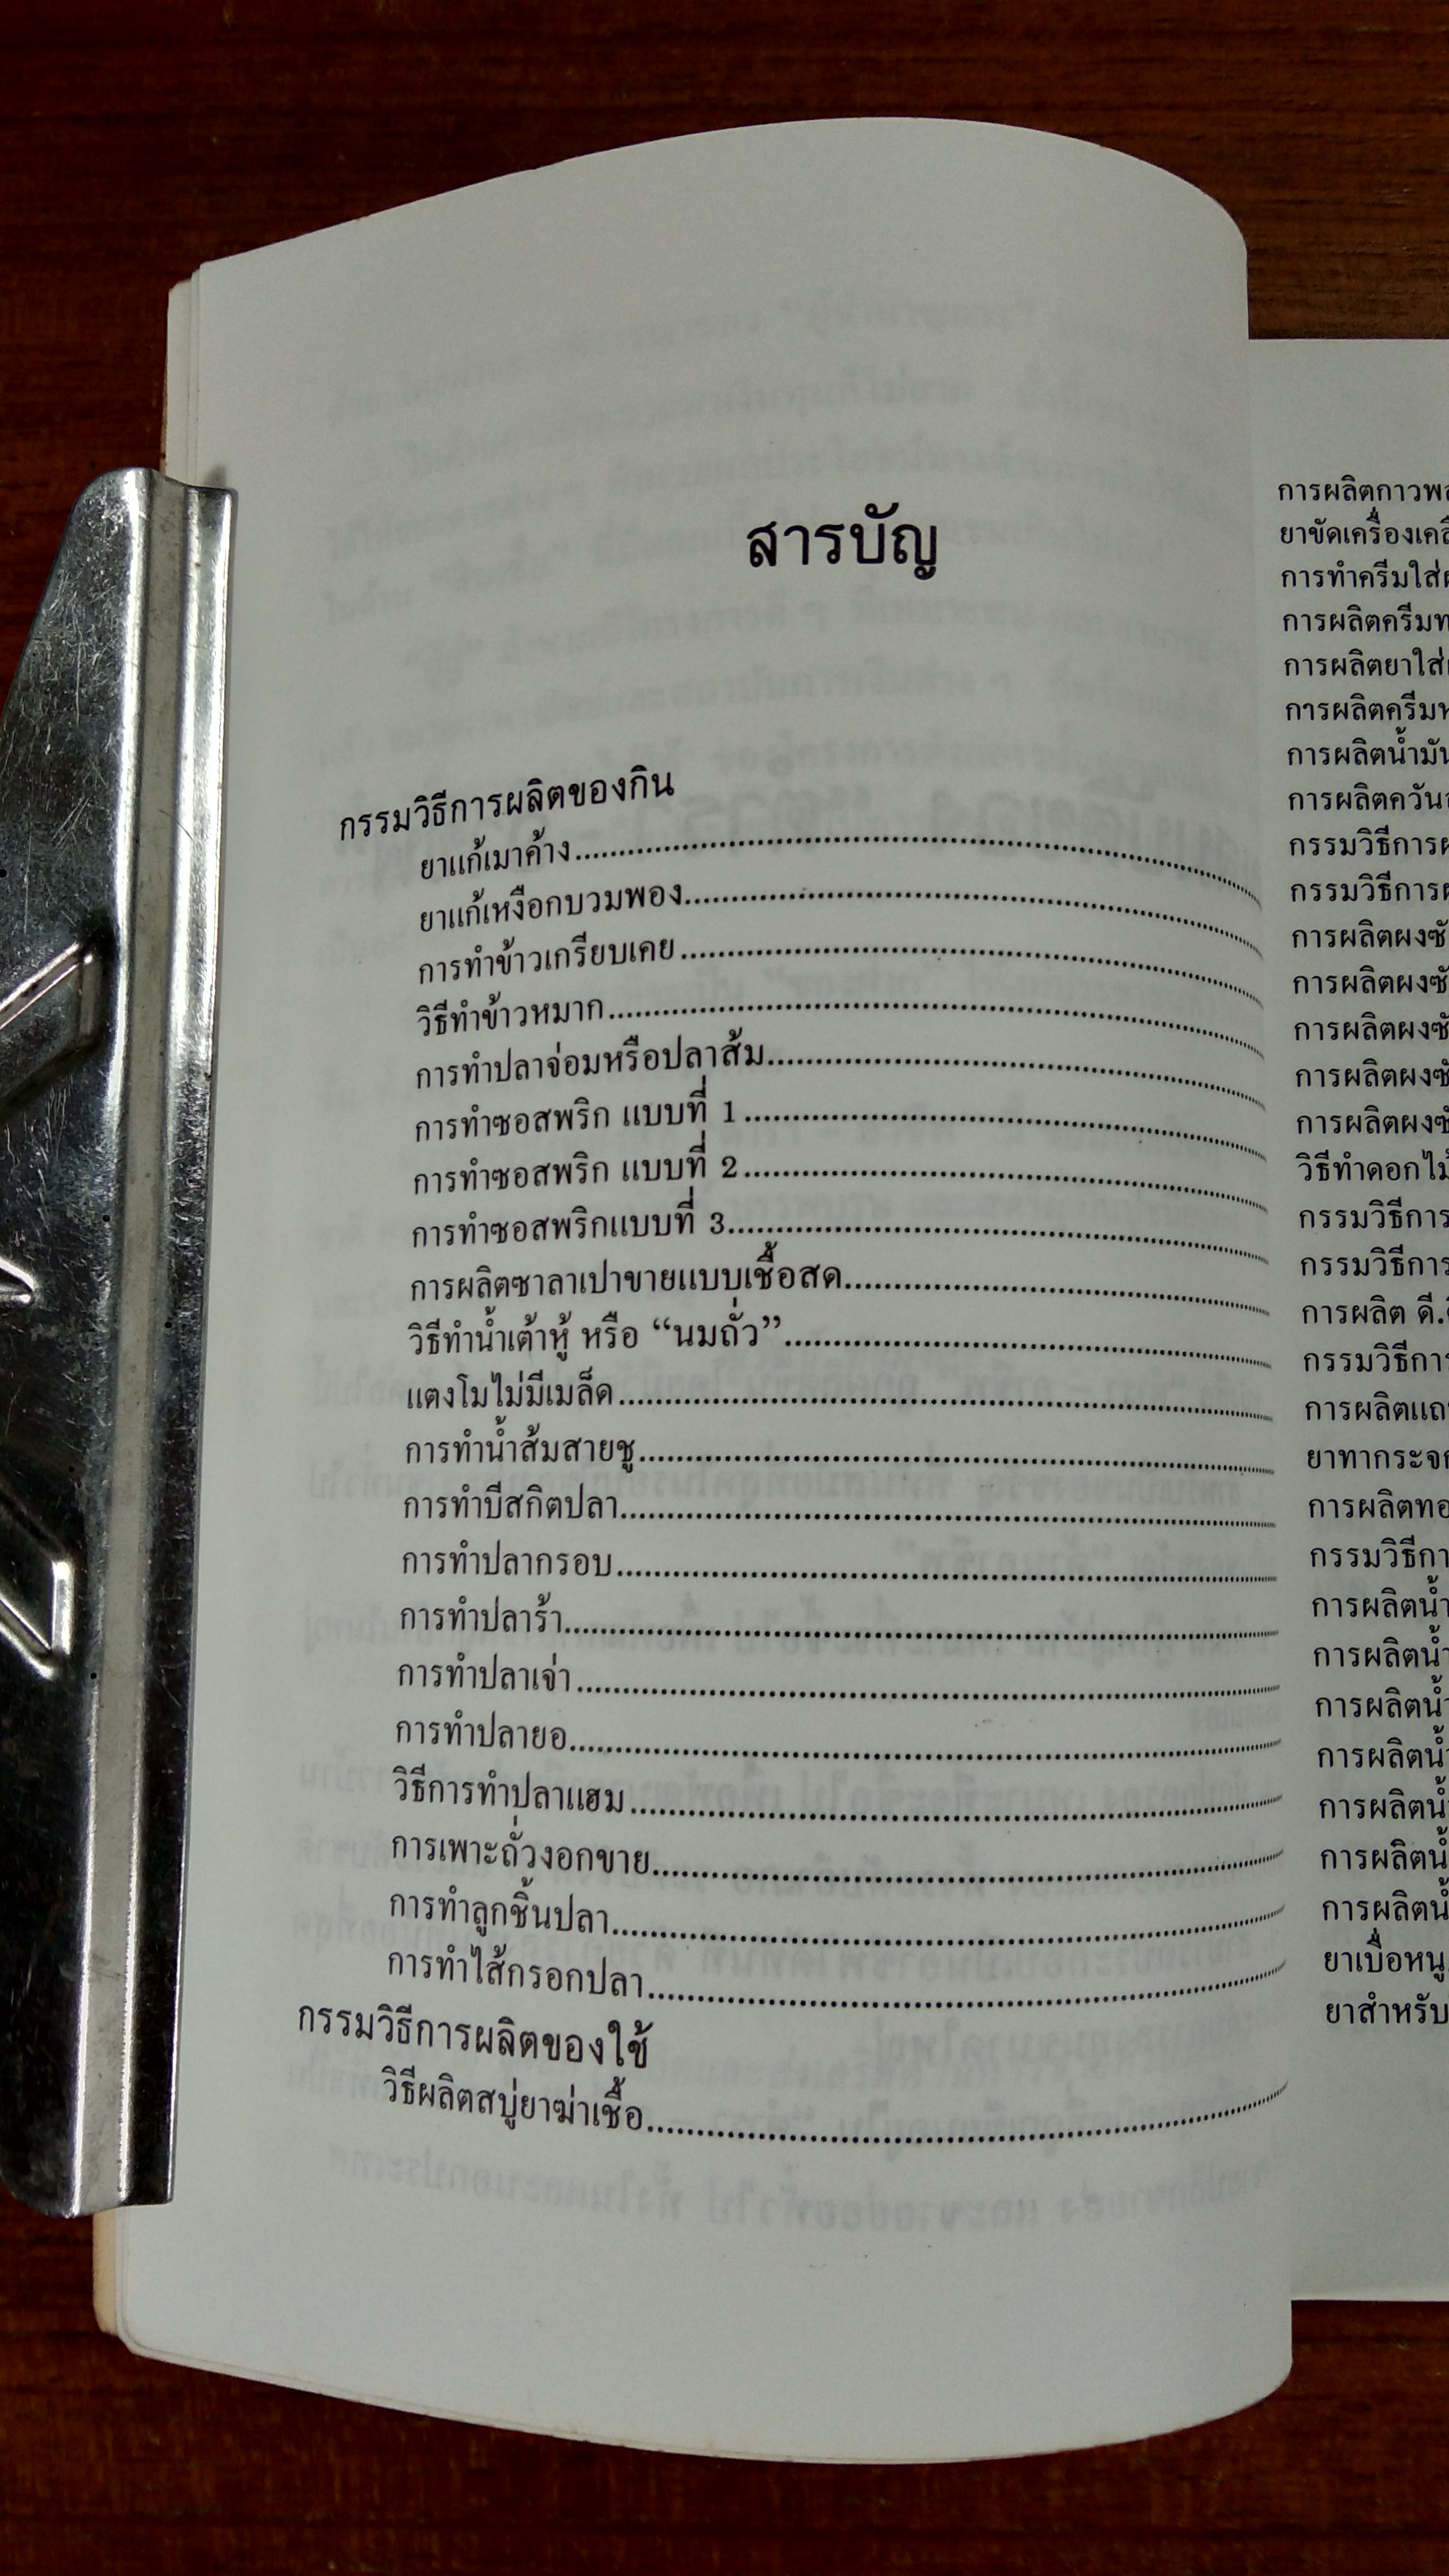 สารบัญ
กรรมวิธีการผลิตของกิน
ยาแก้เมาค้าง
ยาแก้เหงือกบวมพอง
การทำข้าวเกรียบเคย
วิธีทำข้าวหมาก
การทำปลาจ่อมหรือปลาส้ม
การทำซอสพริก แบบที่ 1
การทำซอสพริก แบบที่ 2
การทำซอสพริกแบบที่ 3
การผลิตซาลาเปาขายแบบเชื้อสด
วิธีทำน้ำเต้าหู้ หรือ “นมถั่ว”
แตงโมไม่มีเมล็ด
การทำน้ำส้มสายชู
การทำบีสกิตปลา
การทำปลากรอบ
การทำปลาร้า
การทำปลาเจ่า
การทำปลายอ
วิธีการทำปลาแฮม
การเพาะถั่วงอกขาย
การทำลูกชิ้นปลา
การทำไส้กรอกปลา
กรรมวิธีการผลิตของใช้
วิธีผลิตสบู่ยาฆ่าเชื้อ
การผลิตกาว
ยาขัดเครื่อง
การทำครีมใส่
การผลิตครีม
การผลิตยาใส่
การผลิตครีม
การผลิตน้ำมัน
การผลิตควัน
กรรมวิธีการ
กรรมวิธีการ
การผลิตผงซั
การผลิตผงซั
การผลิตผงซั
การผลิตผงซั
การผลิตผงซั
วิธีทำดอกไม้
กรรมวิธีการ
กรรมวิธีการ
การผลิต ดี.
กรรมวิธีการ
การผลิต
ยาทากระจก
การผลิต
กรรมวิธีกา
การผลิตน้ำ
การผลิตน้ำ
การผลิตน้ำ
การผลิตน้ำ
การผลิตน้ำ
การผลิตน้ำ
การผลิตน้ำ
ยาเบื่อหนู
ยาสำหรับ